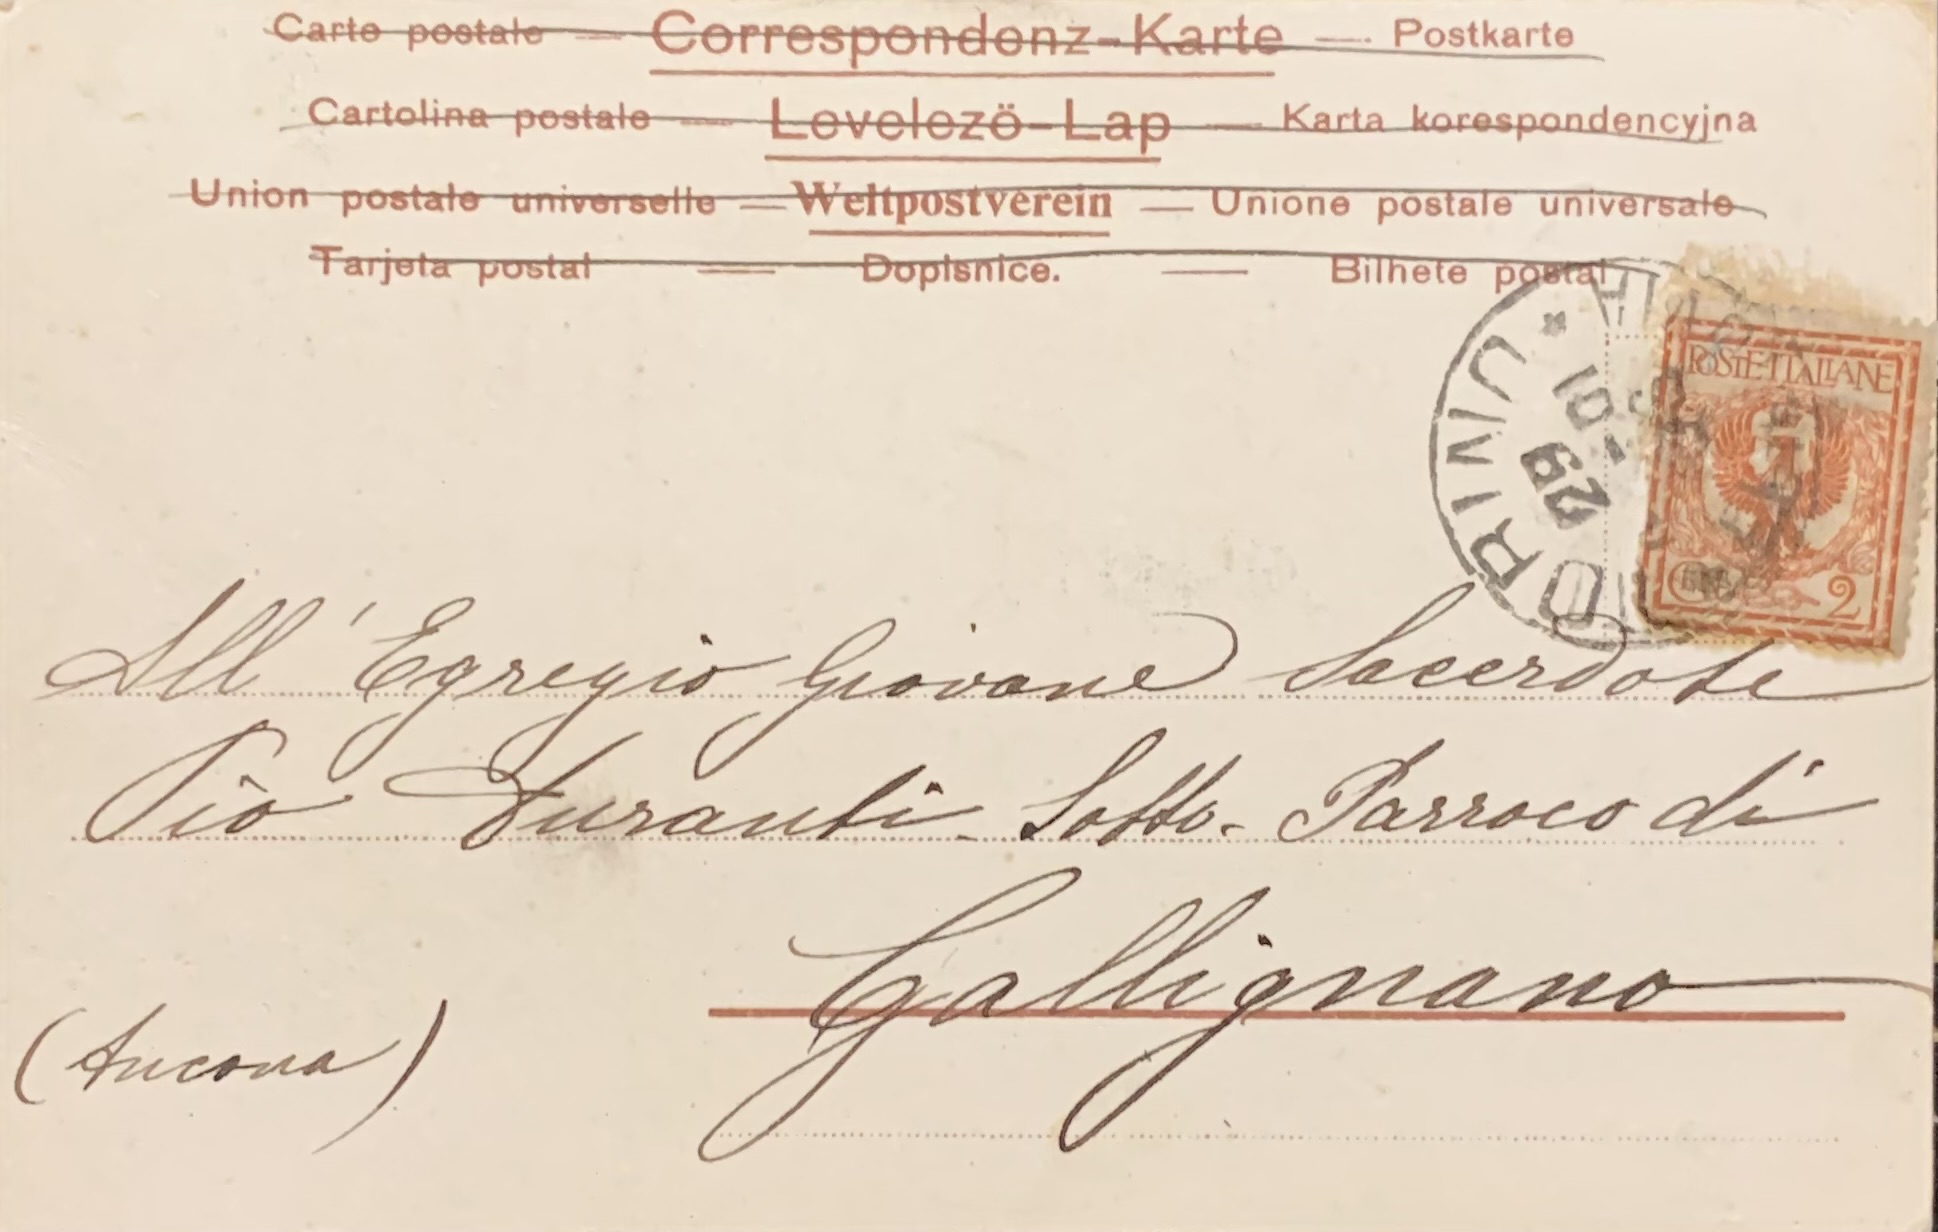 Carte postale — Correspondenz-Karte — Postkarte
Cartolina postale — Levelező-Lap — Karta korespondencyjna
Union postale universelle — Weltpostverein — Unione postale universale
Tarjeta postal — Dopisnice. — Bilhete postal
POSTE ITALIANE
2
29
01
All' Egregio Giovane Sacerdote
Pio Duranti Sotto-Parroco di
Gallignano
(Ancona)